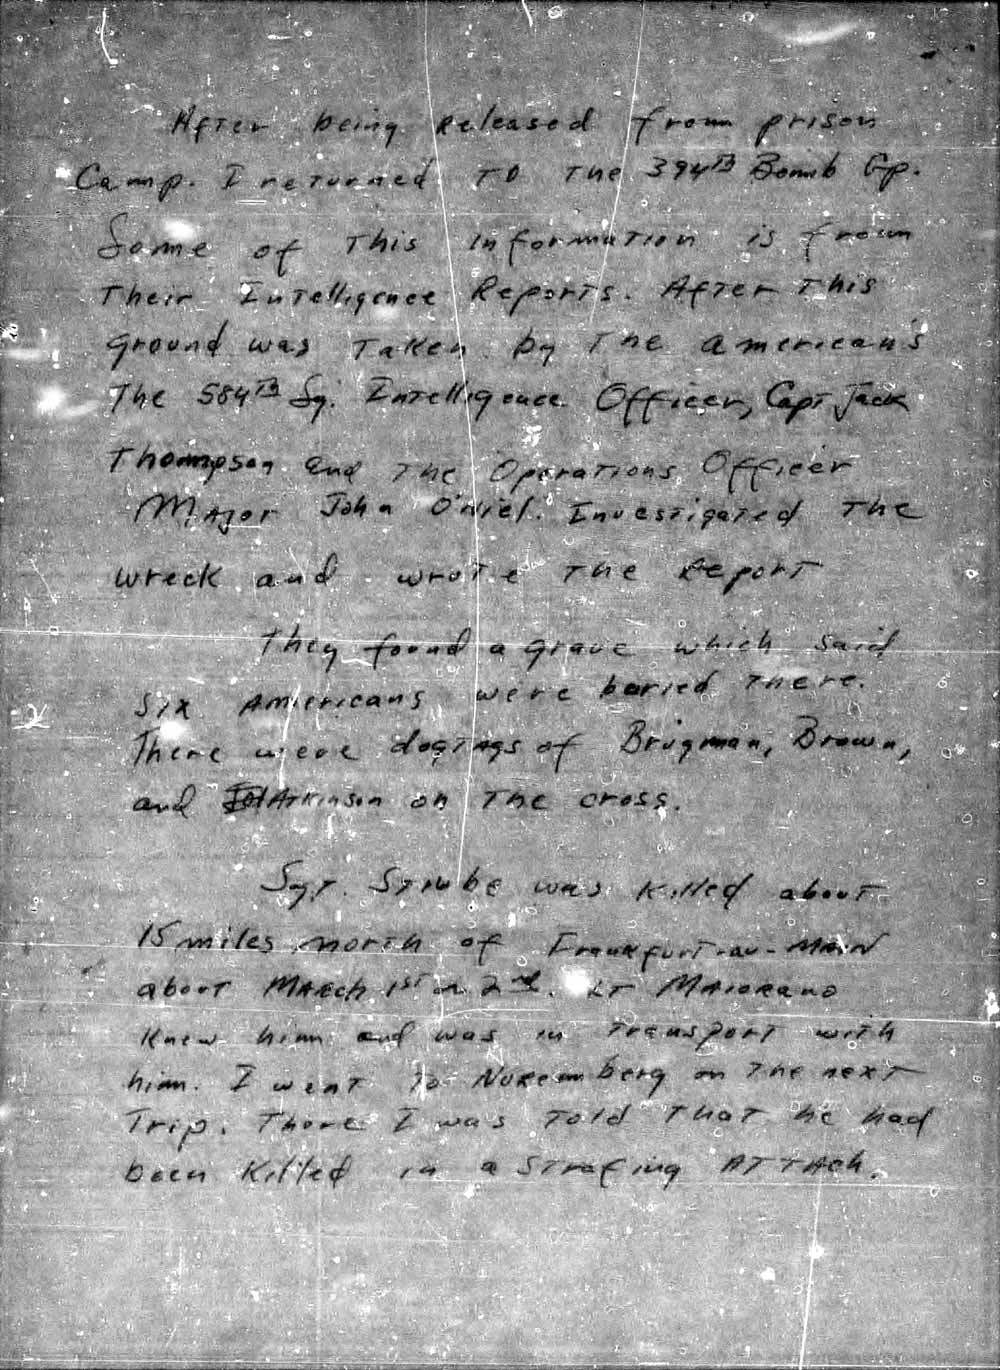 After being Released from prison
Camp. I returned TO The 394TH Bomb Gp.
Some of This Information is from
Their Intelligence Reports. After This
ground was Taken by The American's
The 584TH Sq. Intelligence Officer, Capt Jack
Thompson and The Operations Officer
Major John O'Niel. Investigated The
wreck and wrote The Report
They found a grave which said
Six Americans were buried There.
There were dogtags of Brugman, Brown,
and Atkinson on The cross.
Sgt. Strube was Killed about
15 miles north of Frankfurt-au-Main
about March 1st or 2nd. LT Maiorano
Knew him and was in Transport with
him. I went To Nuremberg on The next
Trip. There I was Told That he had
been Killed in a Strafing ATTACK.